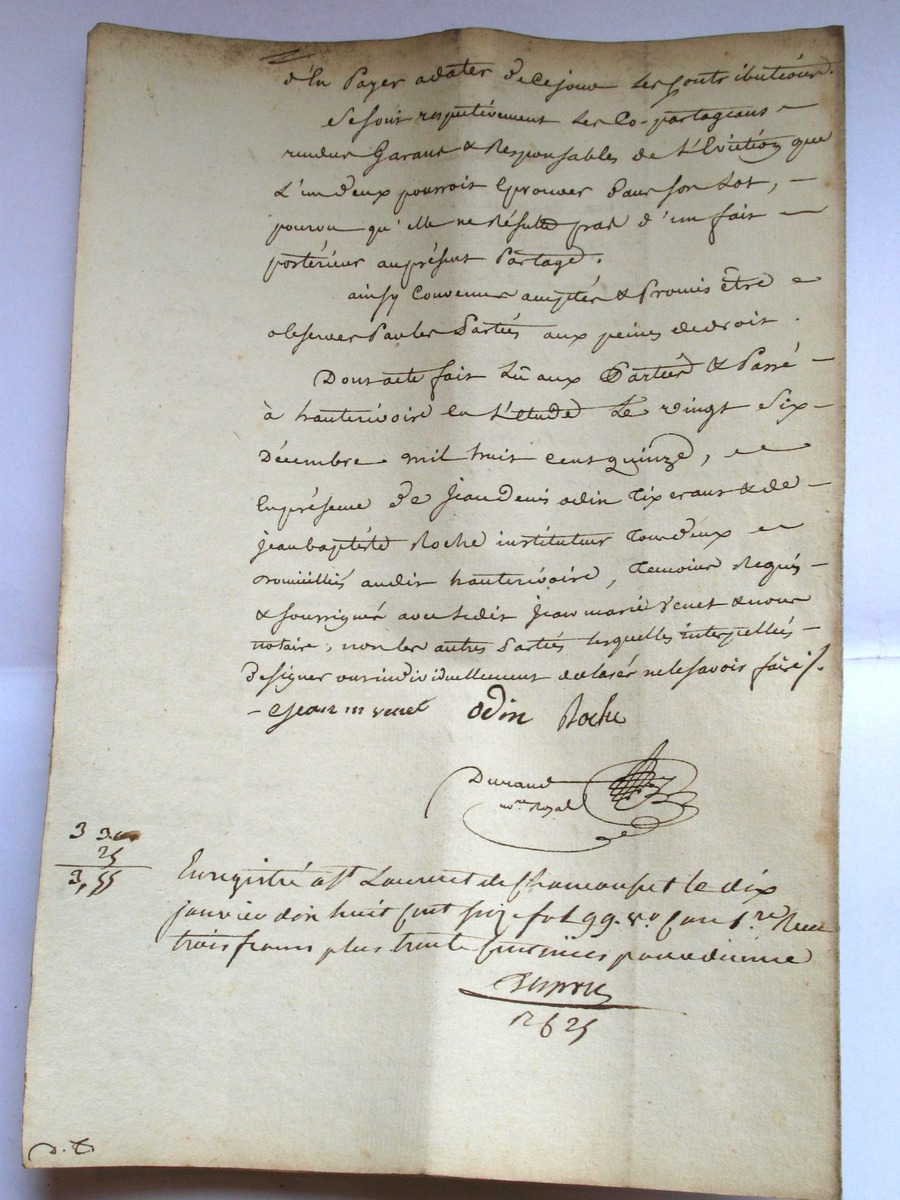 d'En Payer adater decejour Les Contributions.
Sesont respectivement Les Co-partageans -
rendus Garans & Responsables de L'Eviction que
L'un d'eux pourroit Eprouver dans son Lot, -
pourvu qu'elle ne Résulte pas d'un fait -
postérieur auprésent Partage.
ainsy Convenu accepté & Promis être
observer Par les Parties aux peines dedroit.
Dont acte fait Lû aux Parties & Passé -
à hauterivoire En L'étude Le vingt Six -
Décembre mil huit Cent Quinze,
Enprésence de Jean Denis odin Tixerant & de -
jean baptiste Roche instituteur Tous deux
domiciliés audit hauterivoire, Témoins Requis -
& soussignés avec Ledit Jean marie Venet & nous
notaire, non les autres Parties lesquelles interpellées -
designer ont individuellement déclaré nelesavoir faire /.
- Jean m venet odin Roche
Durand
no.re Royal
3 30
25
3,55
Enregistré a St Laurent de Chamousset le dix
janvier dix huit Cent seize fol 99. Vo. Case 1.re Reçu
trois francs plus trente Centimes pour decime
2625